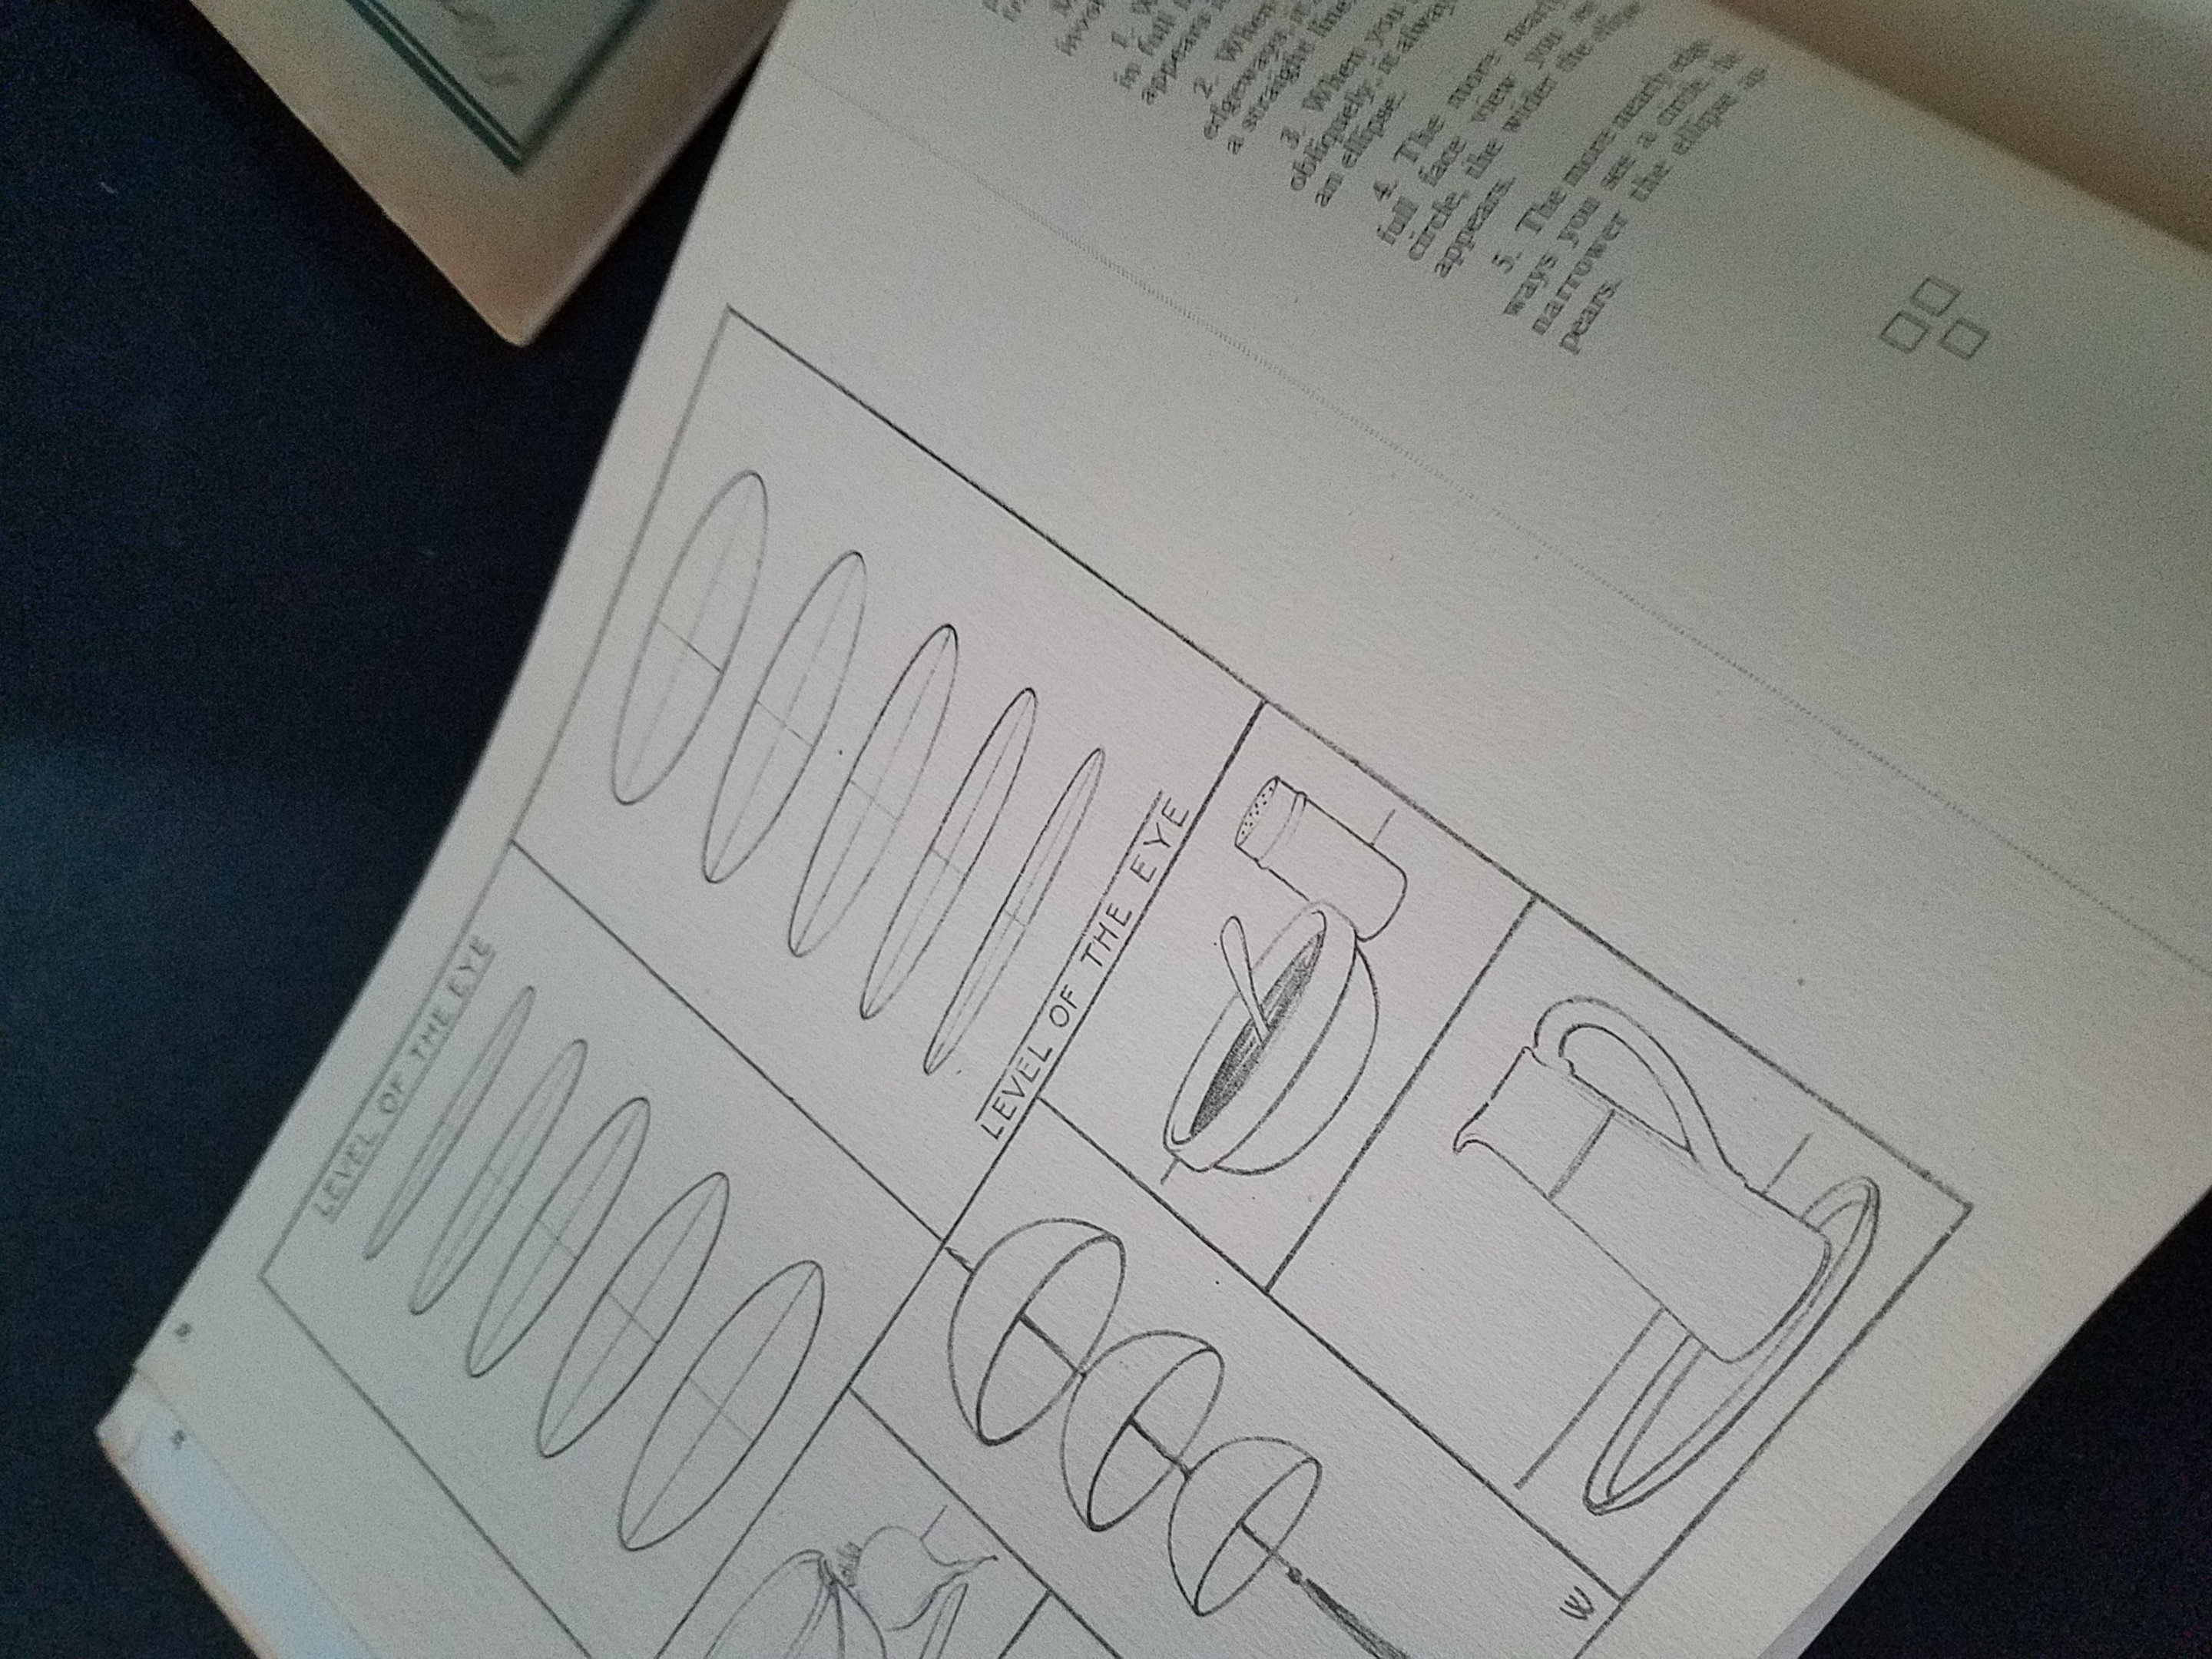 1. W
in full
appears
2. When
edgeways, it
a straight line
3. When you
obliquely, it alway
an ellipse.
4. The more nearl
full face view you
circle, the wider the ellipse
appears.
5. The more nearly edge
ways you see a circle, the
narrower the ellipse ap-
pears.
LEVEL OF THE EYE
LEVEL OF THE EYE
W